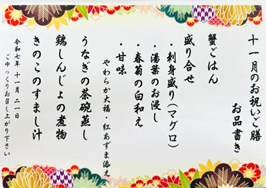 十一月のお祝いご膳
お品書き
蟹ごはん
盛り合せ
・刺身盛り(マグロ)
・湯葉のお浸し
・春菊の白和え
・甘味
やわらか大福・紅あずま添え
うなぎの茶碗蒸し
鶏しんじょの煮物
きのこのすまし汁
令和七年 十一月二一日
ごゆっくりお召し上がり下さい